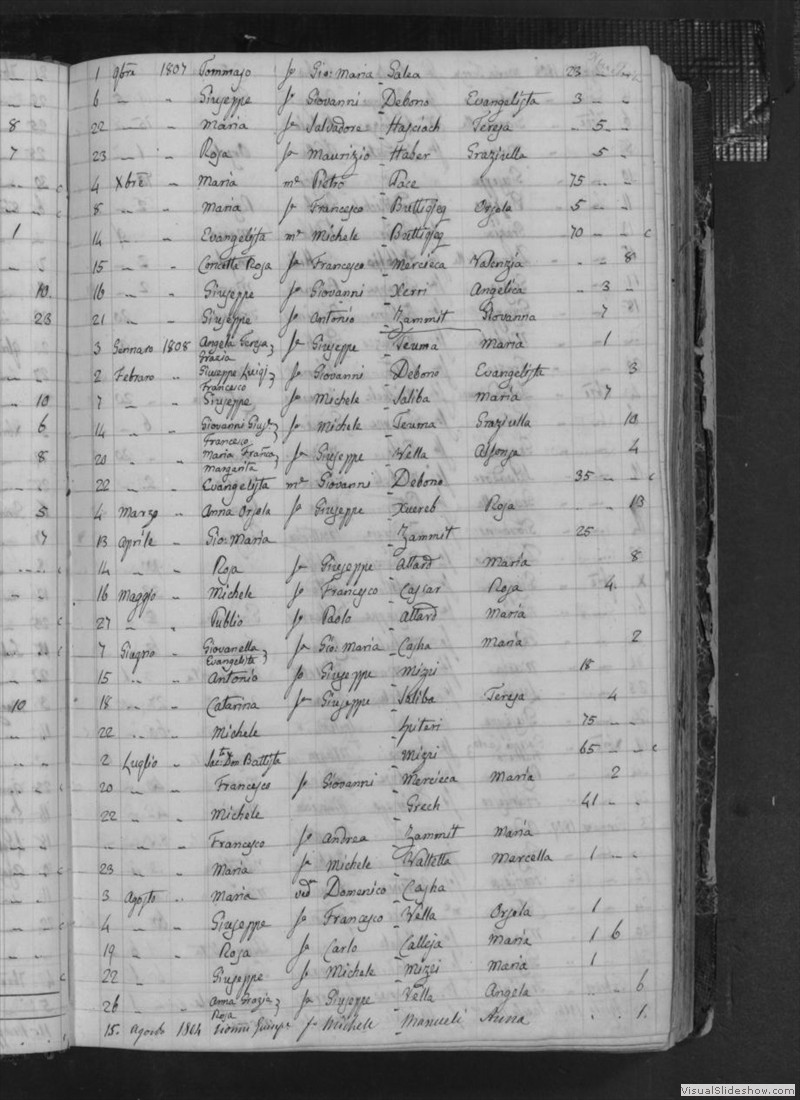 8
7
1
10.
23
10
6
8
5
7
10
1 9bre 1807 Tommaso fo Gio: Maria Galea 23 - -
6 - " Giuseppe fo Giovanni Debono Evangelista 3 - -
22 - " Maria fa Salvadore Hasciach Teresa - 5 -
23 - " Rosa fa Maurizio Haber Grazisella - 5 -
4 Xbre " Maria me Pietro Pace 75 - -
8 " " Maria fa Francesco Buttigieg Orsola 5 - -
14 - " Evangelista me Michele Buttigieg 70 - - c
15 - " Concetta Rosa fa Francesco Mercieca Valenzia - - 8
16 - " Giuseppe fo Giovanni Xerri Angelica - 3 -
21 - " Giuseppe fo Antonio Zammit Giovanna - 7
3 Gennaro 1808 Angela Teresa Grazia fa Giuseppe Teuma Maria 1
2 Febraro " Giuseppe Luigi Francesco fo Giovanni Debono Evangelista 3
7 " " Giuseppe fo Michele Saliba Maria 7
14 - " Giovanni Giuse Francesco fo Michele Teuma Grazisella 10
20 - " Maria Franca Margarita fa Giuseppe Vella Alfonsa 4
22 - " Evangelista me Giovanni Debono 35 - - c
4 Marzo " Anna Orsola fa Giuseppe Xuereb Rosa - - 13
13 Aprile " Gio: Maria Zammit 25
14 - " Rosa fa Giuseppe Attard Maria 8
16 Maggio " Michele fo Francesco Cascar Rosa 4
27 " " Publio fo Paolo Attard Maria
7 Giugno " Giovanella Evangelista fa Gio: Maria Casha Maria 2
15 " " Antonio fo Giuseppe Mizzi 18
18 " " Catarina fa Giuseppe Saliba Teresa 4
22 " " Michele Spiteri 75 - -
2 Luglio " Sacte Don Battista Mizzi 65 - - c
20 - " Francesco fo Giovanni Mercieca Maria 2
22 - " Michele Grech 41 - -
" " " Francesco fo Andrea Zammit Maria
23 - " Maria fa Michele Valletta Marcella 1 - -
3 Agosto " Maria veda Domenico Casha
4 - " Giuseppe fo Francesco Vella Orsola 1
19 - " Rosa fa Carlo Calleja Maria 1 6
22 - " Giuseppe fo Michele Mizzi Maria 1
26 - " Anna Grazia Rosa fa Giuseppe Vella Angela " - 6
15. Agosto 1804 Giuseppe fo Michele Manueli Anna . . 1.
VisualSlideshow.com